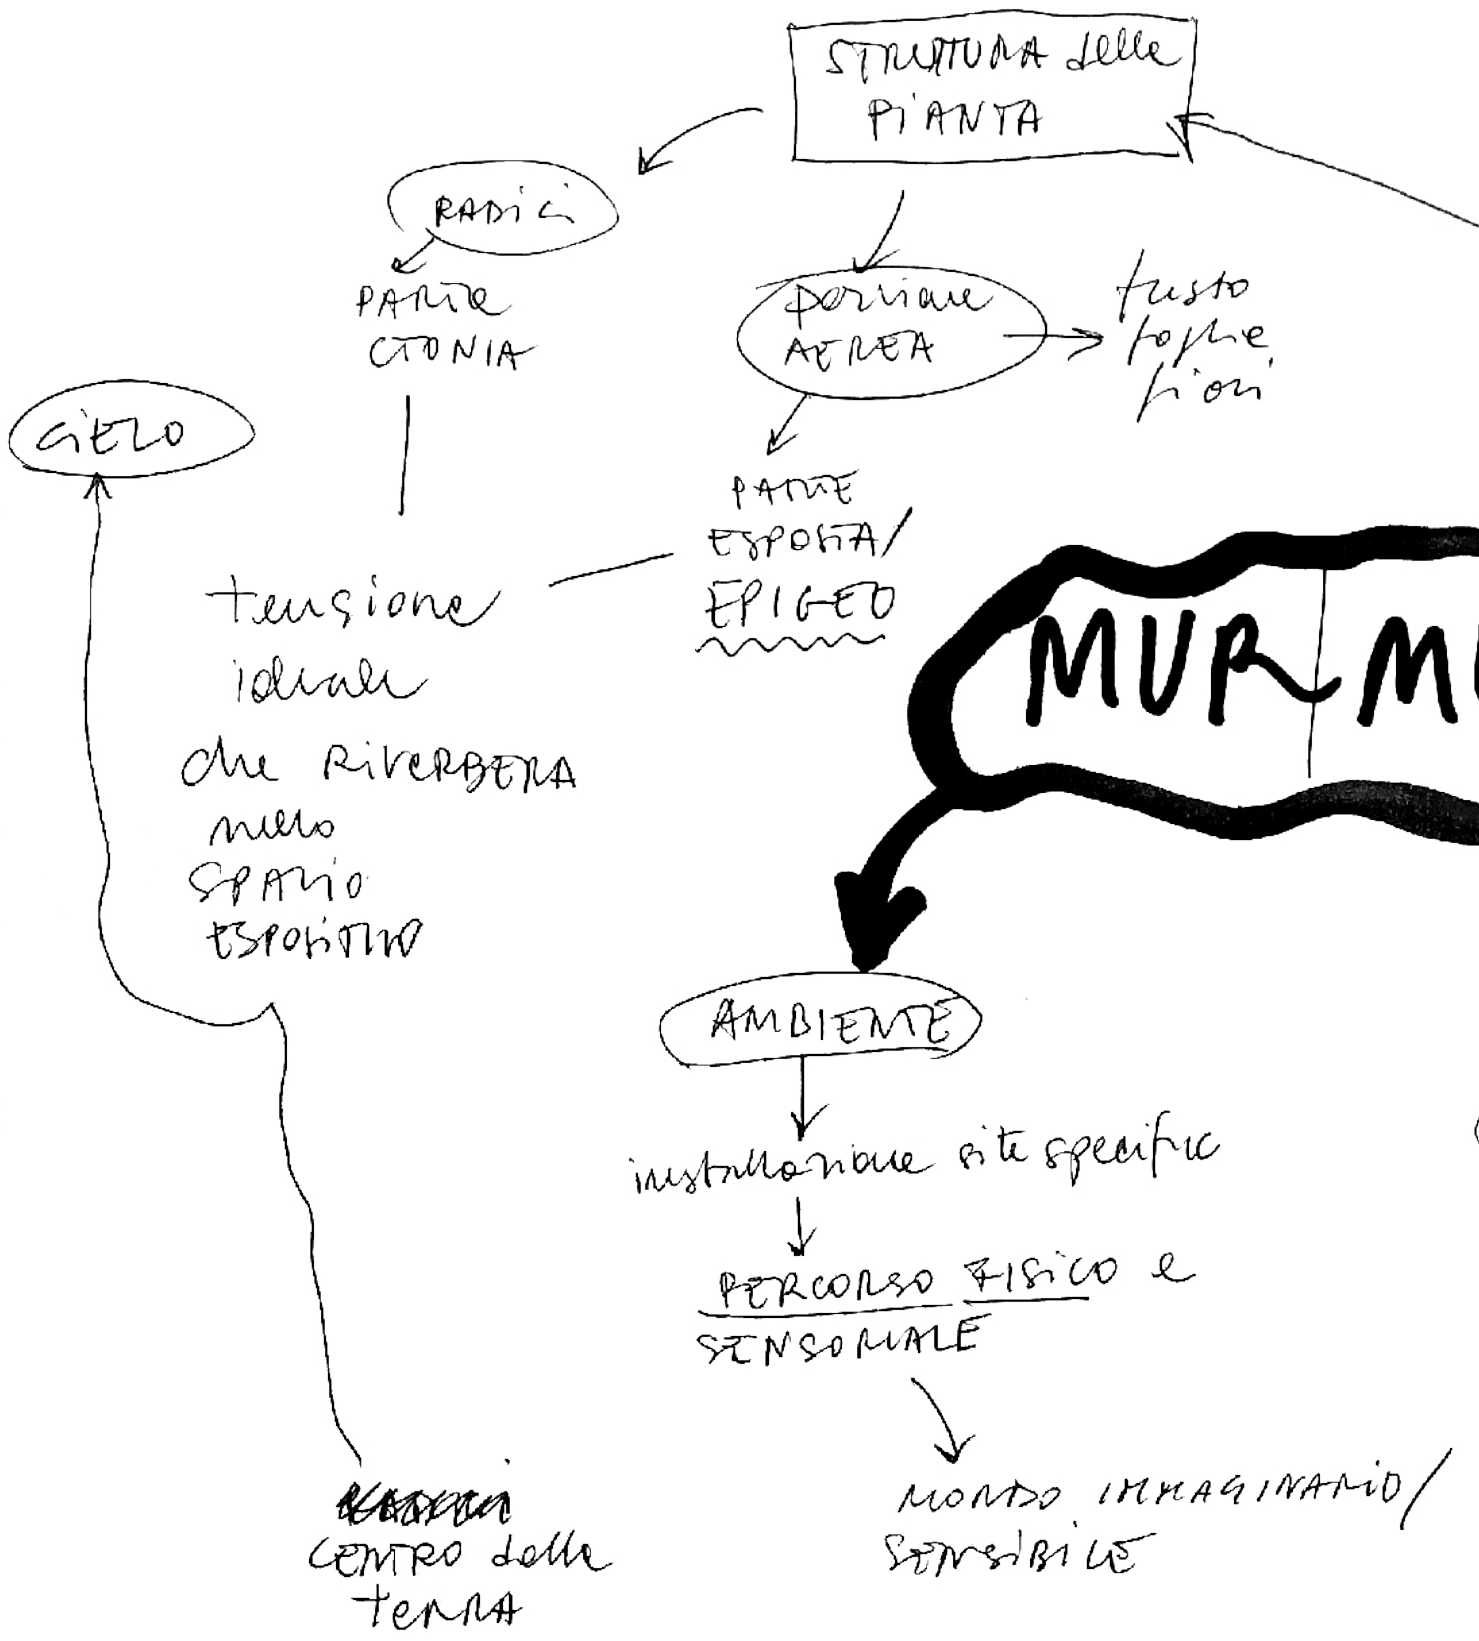 STRUTTURA della
PIANTA
RADICI
PARTE
CTONIA
porzione
AEREA
fusto
foglie
fiori
CIELO
PARTE
ESPOSTA/
EPIGEO
tensione
ideale
che RIVERBERA
nello
SPAZIO
ESPOSITIVO
MUR M
AMBIENTE
installazione site specific
PERCORSO FISICO e
SENSORIALE
MONDO IMMAGINARIO/
SENSIBILE
CENTRO della
TERRA